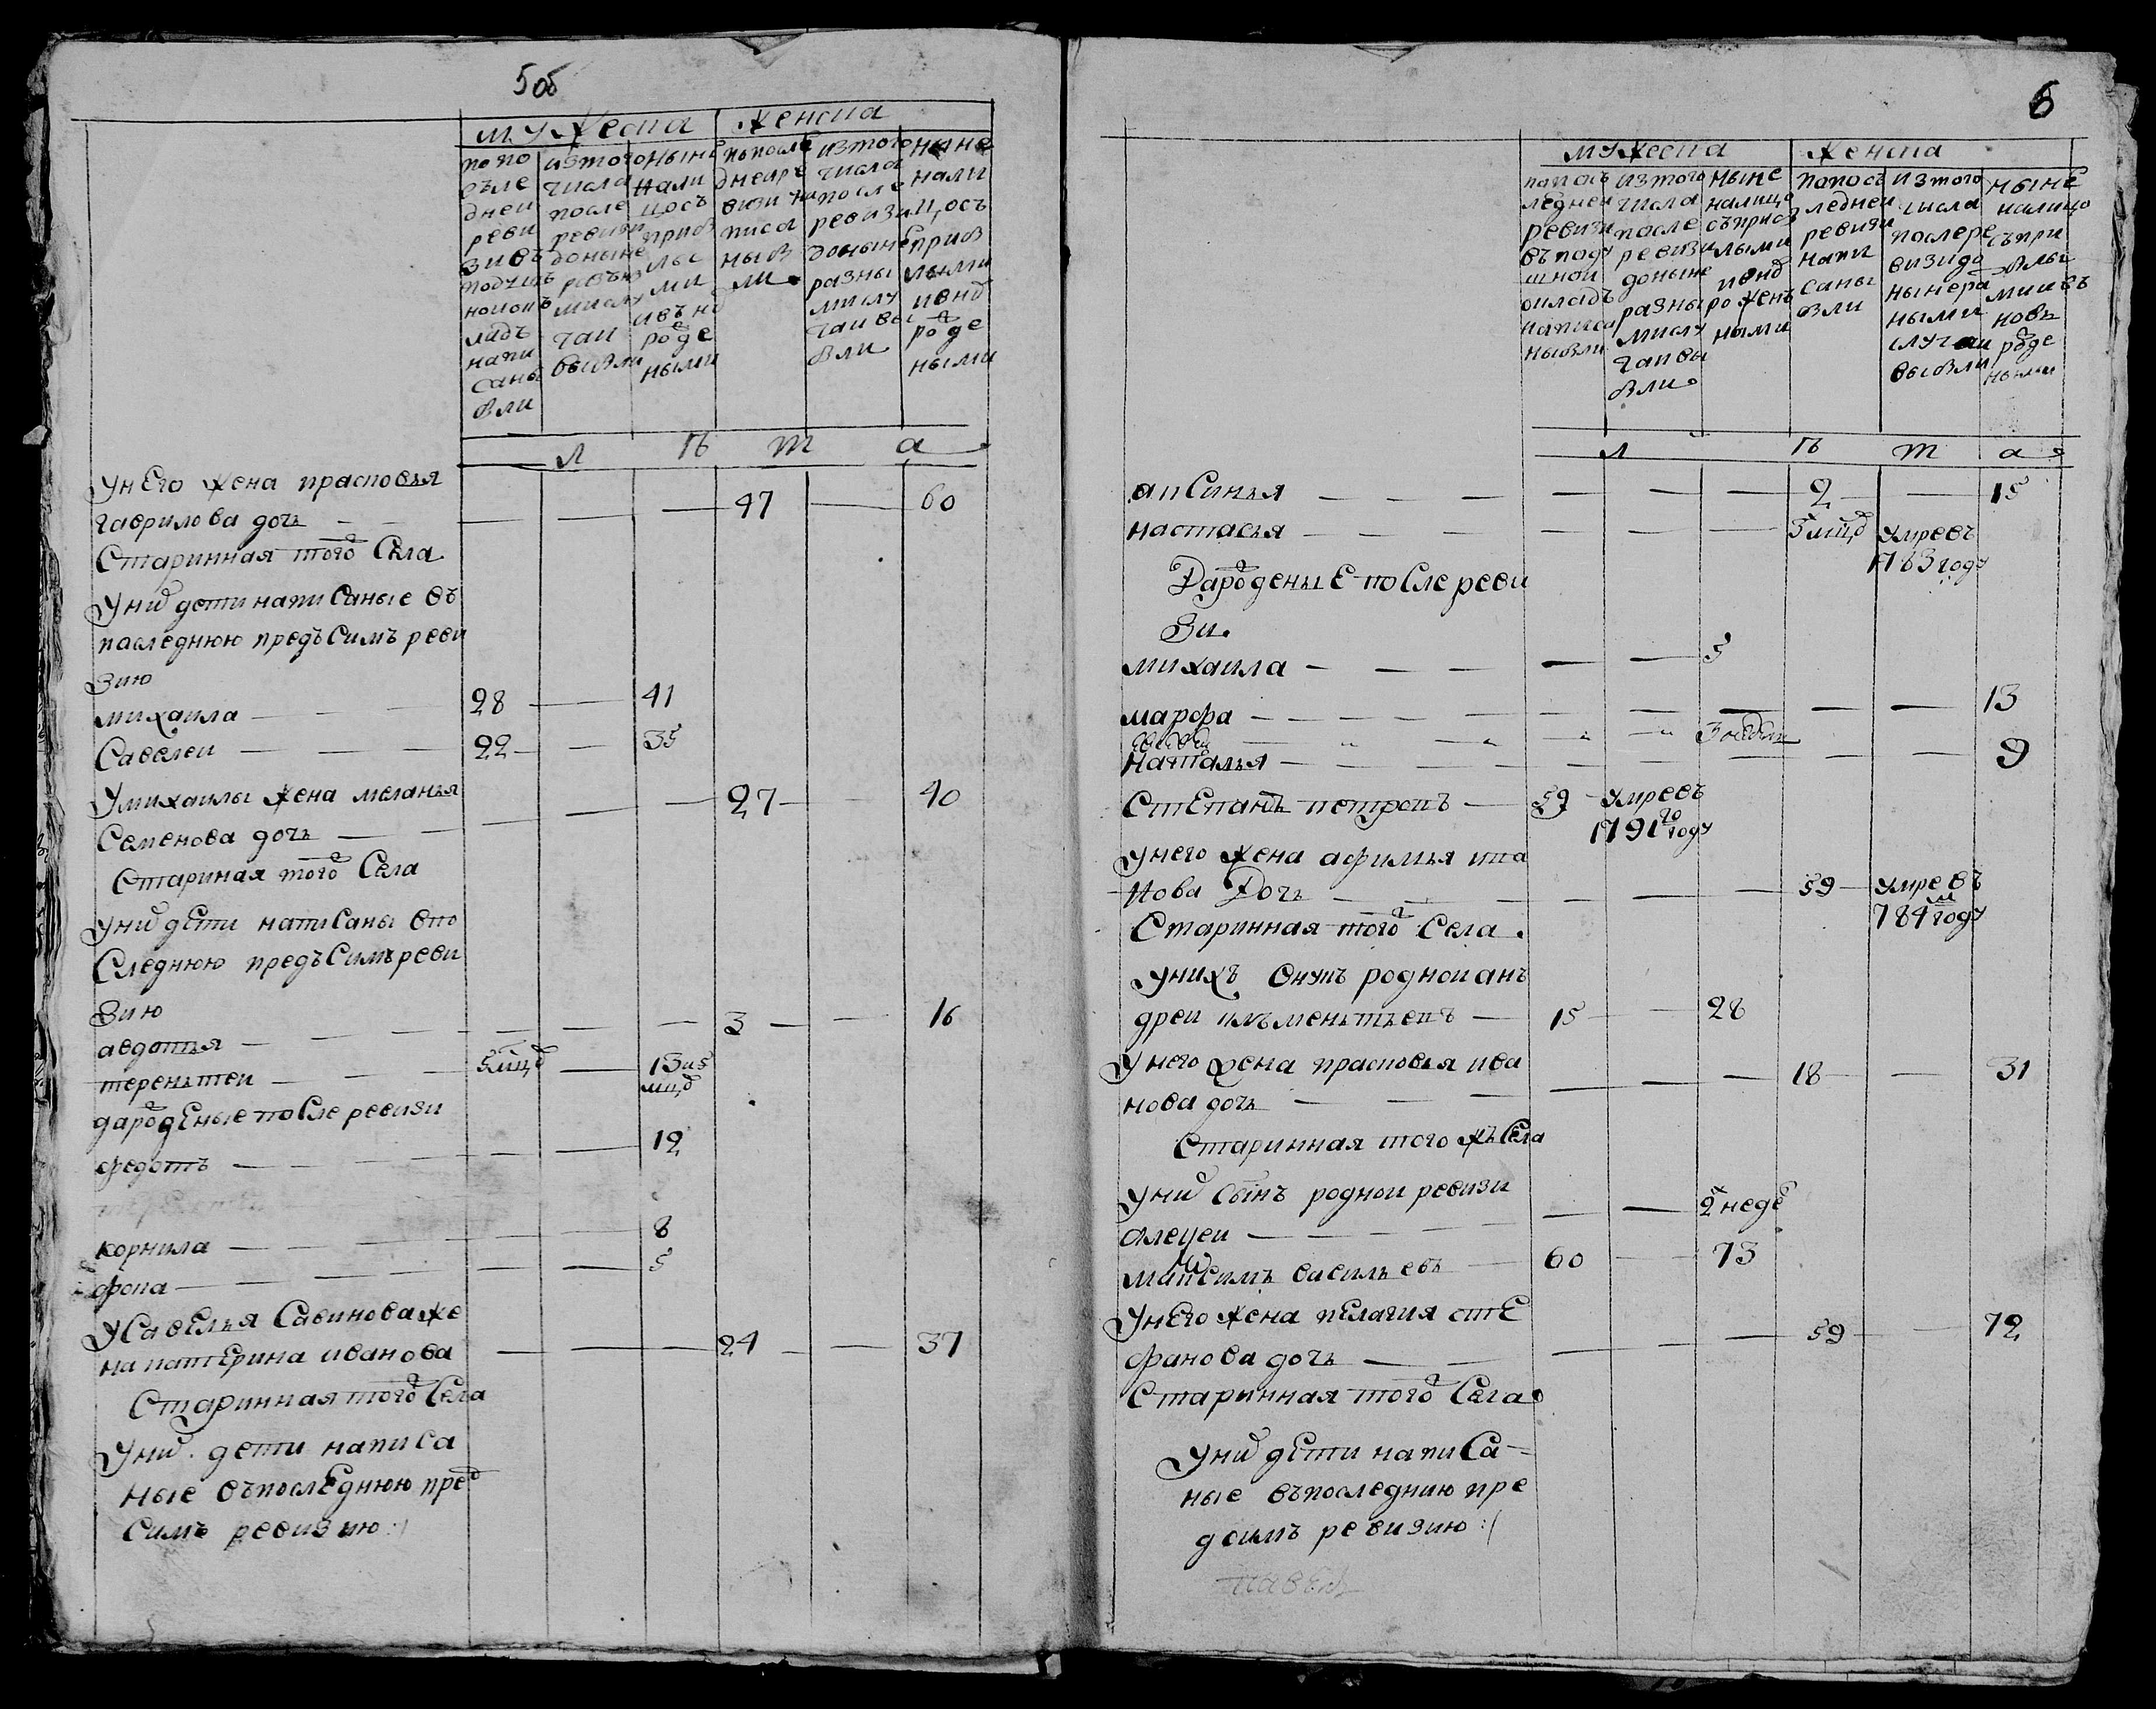 5об
мужеска женска
по по
сѣле
днеи
реви
зи въ
подуш
номок
ладъ
напи
саны
вли
изтого
числа
после
ревизи
доныне
разны
ми слу
чаи
выбыли
ныне
нали
цосъ
приб
лы
ми
ивъно
роде
ными
попосле
днеи ре
визи на
писа
ны бы
ли
изтого
числа
после
ревизи
доныне
разны
ми слу
чаи вы
были
ныне
нали
цосъ
приб
лыми
ивнов
роде
ными
л ѣ т а
унЕго жена прасковья
гаврилова дочь — 47 — 60
Старинная того Села
У них дети написаные въ
последнюю предъ Симъ реви
зию
михаила — 28 — 41
Савелеи — 22 — 35
У михаилы жена меланья
Семенова дочь — 27 — 40
Стариная того Села
У них дети написаны впо
Следнюю предъ Симъ реви
зию
авдотья — 3 — 16
тереньтеи — 5 мцов — 13 и 5
мцов
да роденые после ревизи
федотъ — 12
корнила — 8
фока — 5
У Савелья Савинова же
на катерина иванова — 24 — 37
Старинная того Села
У них дети написа
ные въпоследнюю пред
Симъ ревизию :/
6
мужеска женска
попось
леднеи
ревизи
въподу
шнои
окладъ
написа
ны были
изтого
числа
после
ревизи
доныне
разны
ми слу
чаи вы
были
ныне
налицо
съприб
лыми
ивнов
рожень
ными
попось
леднеи
ревизи
напи
саны
были
изтого
числа
после ре
визи до
ныне ра
зными
случаи
выбыли
ныне
налицо
съпри
былы
ми ивъ
новь
роде
ными
л ѣ т а
аксинья — 2 — 15
настасья — 3 мцов умре въ
1783 году
Да роденыЕ после реви
зи.
михаила — 5
марфа — 13
3 недели
Наталья — 9
СтЕпанъ петровъ — 59 умре въ
1791го году
у него жена афимья ива
нова Дочь — 59 — умре въ
784м году
Старинная того Села
у нихъ внукъ роднои ан
дреи климентьевъ — 15 — 28
У него жена прасковья ива
нова дочь — 18 — 31
Старинная того жъ Села
У них Сынъ роднои ревизи
алексеи — 2 недел
Максимъ васильевъ — 60 — 73
У нЕго жена пЕлагия стЕ
фанова дочь — 59 — 72
Старинная того Села
У них дЕти написа-
ные въпоследнию пре
дсимъ ревизию :/